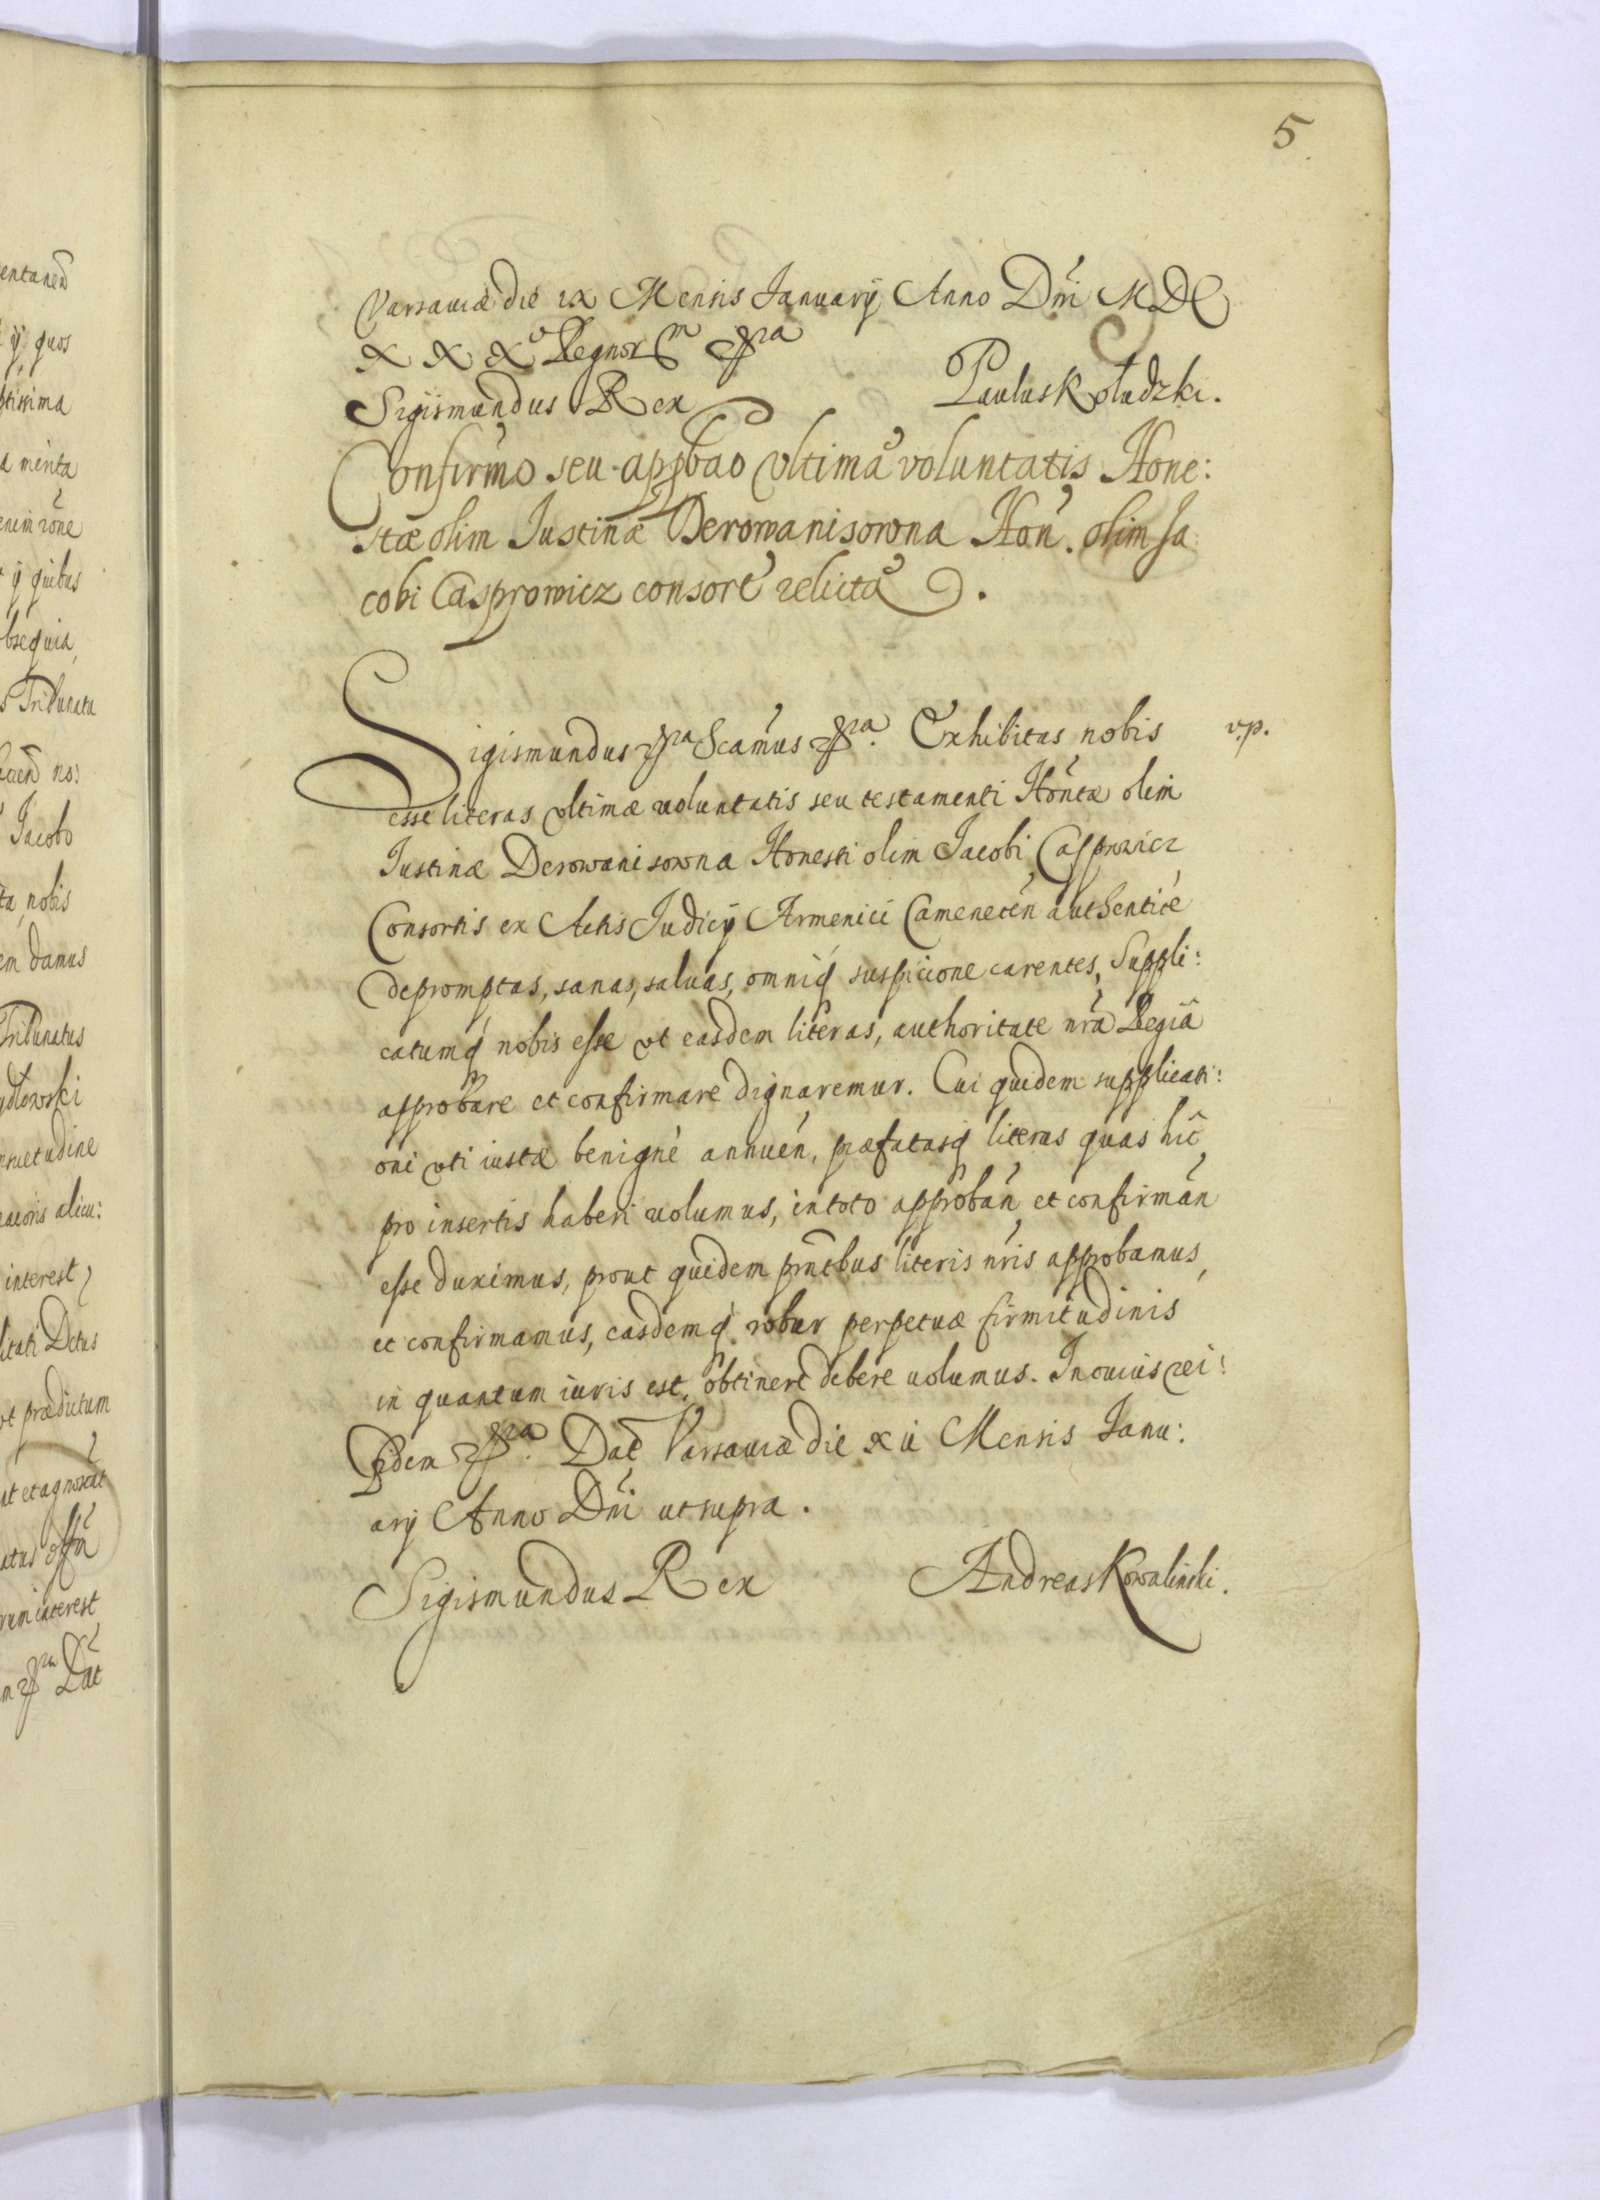 5
Varsauiæ die ix Mensis Januarij Anno Dni MDC
XXX° Regnor m &ra
Sigismundus Rex Paulus Koludzki.
Confirmo seu appbao vltimæ voluntatis Hone:
stæ olim Iustinæ Derowanisowna Hon. olim Ja
cobi Casprowicz consorte relictæ.
Sigismundus &ra Scamus &ra. Exhibitas nobis v.p.
esse literas vltimæ uoluntatis seu testamenti Hontæ olim
Iustinæ Derowanisowna Honesti olim Jacobi Casprowicz
Consortis ex Actis Judicij Armenici Cameneceń authenticè
depromptas, sanas, saluas, omniq suspicione carentes, Suppli:
catumq nobis esse vt easdem literas, authoritate nrâ Regiâ
approbare et confirmare dignaremur. Cui quidem supplicati:
oni vti iustæ benignè annueń, præfatasq literas quas hic
pro insertis haberi uolumus, in toto approbań et confirmań
esse duximus, prout quidem pntibus literis nris approbamus
et confirmamus, easdemq robur perpetuæ firmitudinis
in quantum iuris est, obtinere debere uolumus. In cuius rei:
fidem &ra. Dat Varsauiæ die xii Mensis Janu:
arij Anno Dni ut supra.
Sigismundus Rex Andreas Kowalinski.
entaneu
ij quos
tissima
a menta
enim rone
ij quibus
bsequia,
s Tribunatu
no:
Jacobo
ta nobis
em damus
Tribunatus
dlowski
nsuetudine
aioris alicu:
interest
litati Dctus
vt prædictum
ut et agnoscat
atus
rum interest
m &ra Dat